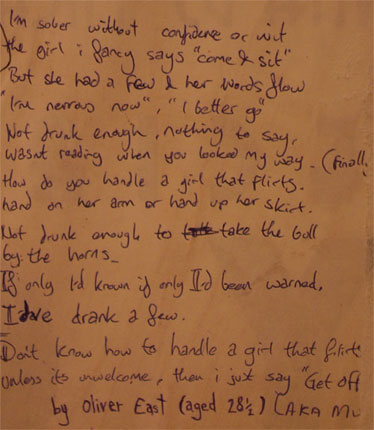 I'm sober without confidence or wit
the girl i fancy says "come & sit"
But she had a few & her words flow
"I'm nervous now", "I better go"
Not drunk enough, nothing to say,
wasnt reading when you looked my way. (finall
How do you handle a girl that flirts.
hand on her arm or hand up her skirt.
Not drunk enough to take the bull
by the horns_
If only I'd known if only I'd been warned,
I'dave drank a few.
Don't know how to handle a girl that flirts
unless its unwelcome, then i just say "Get off
by Oliver East (aged 28½) (AKA Mu